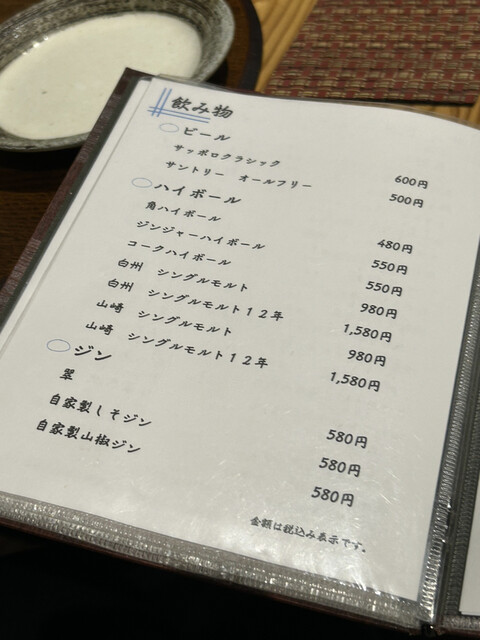 飲み物
ビール
サッポロクラシック 600円
サントリー オールフリー 500円
ハイボール
角ハイボール 480円
ジンジャーハイボール 550円
コークハイボール 550円
白州 シングルモルト 980円
白州 シングルモルト12年 1,580円
山崎 シングルモルト 980円
山崎 シングルモルト12年 1,580円
ジン
翠 580円
自家製しそジン 580円
自家製山椒ジン 580円
金額は税込み表示です。